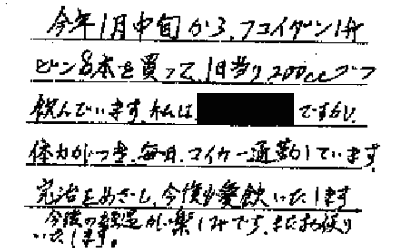 今年1月中旬から、フコイダン1升
ビン8本を買って、1日当り200ccずつ
飲んでいます。私は ですが、
体力がつき、毎日、マイカー通勤しています。
完治をめざし、今後も愛飲いたします
今後の経過が楽しみです。またお便り
いたします。